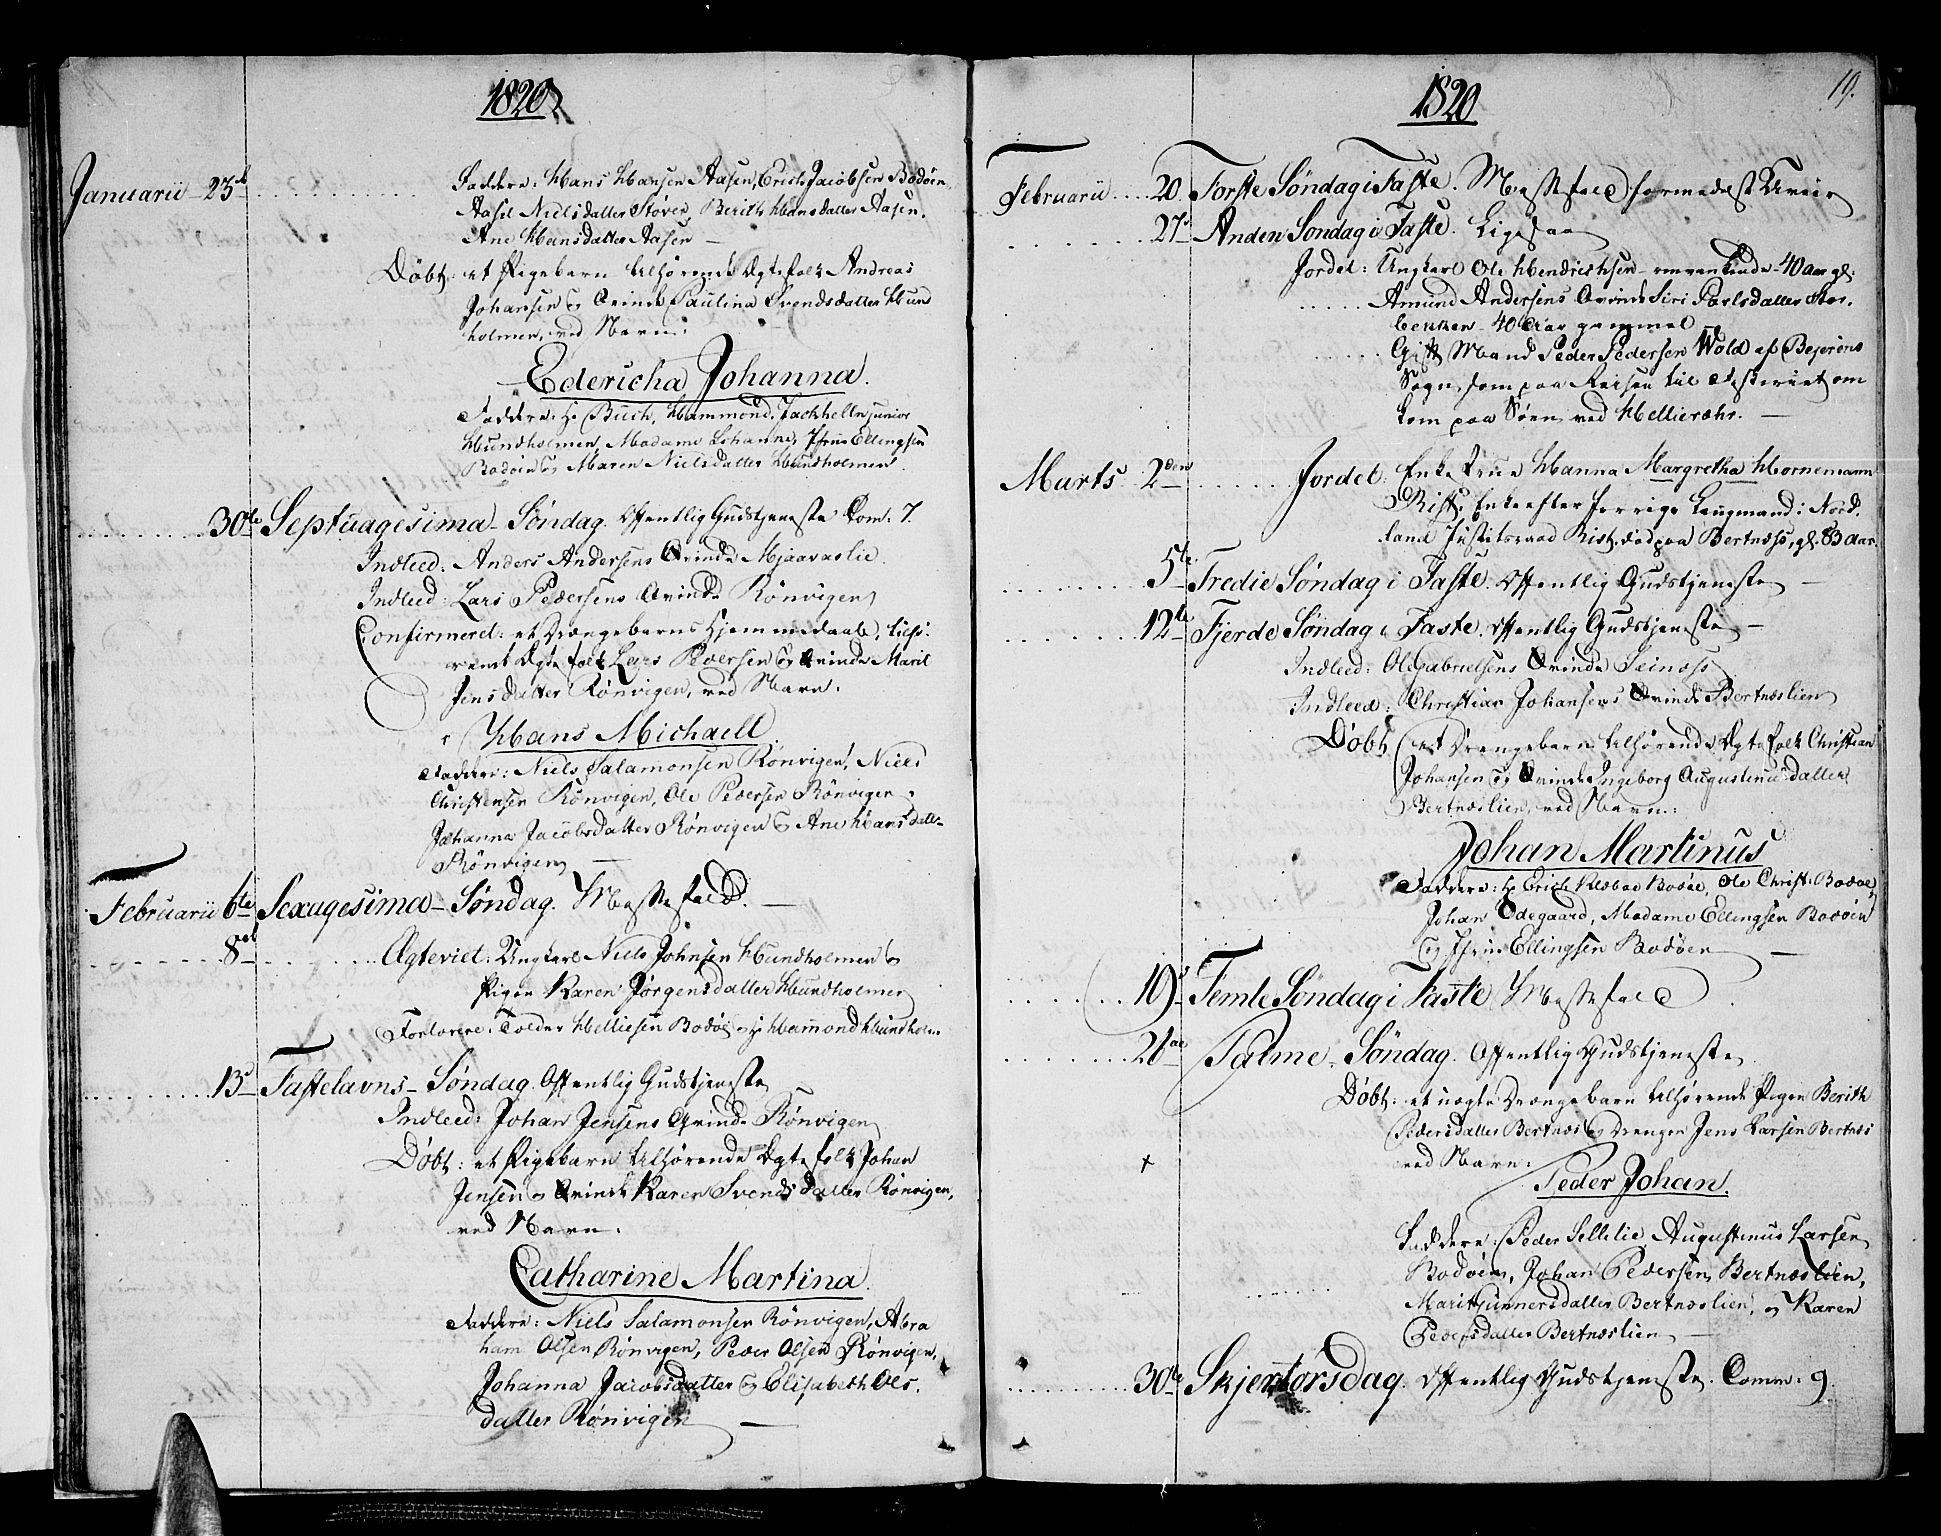 1820
Januarii 23de Faddere: Hans Hansen Aasen, Erich Jacobsen Bodøen,
Aasel Nielsdatter Støver, Berith Hansdatter Aasen,
Ane Hansdatter Aasen
Döbt: et Pigebarn tilhørende Ægtefolk Andreas
Johansen og Qvinde Paulina Svendsdatter Hund
holmen, ved Navn:
Edericha Johanna.
Faddere: Hr Buch, Hammond, Jackhelln junior
Hundholmen, Madame Johanne, Jfrue Ellingsen
Bodøen og Maren Nielsdatter Hundholmen.
30te Septuagesima Søndag. Offentlig Gudstjeneste Com: 7.
Indleed: Anders Andersens Qvinde Mjaavaslie.
Indleed: Lars Pedersens Qvinde Rönvigen
Confirmeret: et Drængebarns Hjemmedaab, tilhø-
rende Ægtefolk Lars Pedersen og Qvinde Marit
Jensdatter Rönvigen, ved Navn:
Hans Michaell.
Faddere: Niels Salamonsen Rönvigen, Niels
Christensen Rönvigen, Ole Pedersen Rönvigen,
Johanna Jacobsdatter Rönvigen og Ane Hansdatter
Rönvigen
Februarii 6te Sexagesima Søndag. Messefald.
8de Ægteviet: Ungkarl Niels Johnsen Hundholmen og
Pigen Karen Jörgensdatter Hundholmen
Forlovere: Tolder Helliesen Bodøe og Hr Hammond Hundholm.
13de Fastelavns Søndag. Offentlig Gudstjeneste
Indleed: Johan Jensens Qvinde Rönvigen
Döbt: et Pigebarn tilhørende Ægtefolk Johan
Jensen og Qvinde Karen Svendsdatter Rönvigen,
ved Navn:
Catharine Martina.
Faddere: Niels Salamonsen Rönvigen, Abra
ham Olsen Rönvigen, Peder Olsen Rönvigen,
Johanna Jacobsdatter og Elisabeth Ols-
datter Rönvigen
1820
19.
Februarii 20. Forste Søndag i Faste. Messefald formedelst Uveir
27de Anden Søndag i Faste. Ligesaa
Jordet: Ungkarl Ole Hendrichsen 40 aar gl:
Amund Andersens Qvinde Siri Poelsdatter
40 Aar gammel
Gift Mand Peder Pedersen Wold af Bejerens
Sogn, som paa Reisen til om
kom paa Søen ved
Marts 2den Jordet: Enke Frue Hanna Margretha Hornemann
Rist, Enke efter forrige Laugmand i Nord.
land Justitsraad Rist, død paa Bertnæss, gl: 83 aar.
5te Tredie Søndag i Faste. Offentlig Gudstjeneste
12te Fjerde Søndag i Faste. Offentlig Gudstjeneste
Indleed: Ole Gabrielsens Qvinde Seines
Indleed: Christian Johansens Qvinde Bertnæslien
Döbt: et Drengebarn tilhørende Ægtefolk Christian
Johansen og Qvinde Ingeborg Augustinusdatter
Bertnæslien, ved Navn:
Johan Martinus
Faddere: Hr Erich Bodøe, Ole Christ: Bodøe,
Johan Ödegaard, Madame Ellingsen Bodøen
og Jfrue Ellingsen Bodøen
19de Femte Søndag i Faste Messefald
26de Palme Søndag. Offentlig Gudstjeneste.
Döbt: et uægte Drængebarn tilhørende Pigen Berith
Pedersdatter Bertnæs og Drengen Jens Larsen Bertnæs
ved Navn:
Peder Johan.
Faddere: Peder Augustinus Larsen
Bodøen, Johan Pedersen Bertnæslien,
Marit Gunnersdatter Bertnæslien, og Karen
Pedersdatter Bertnæslien
30te Skjertorsdag. Offentlig Gudstjeneste. Comm: 9.